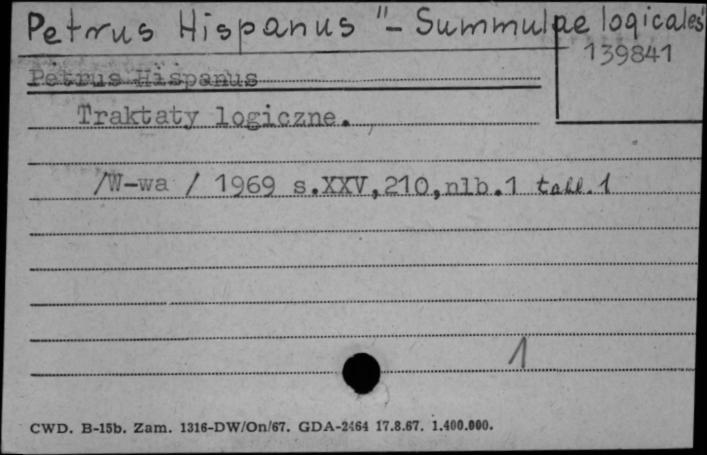 Petrus Hispanus "- Summulae logicales"
139841
Petrus Hispanus
Traktaty logiczne.
/W-wa / 1969 s.XXV,210,nlb.1 tabl.1
1
CWD. B-15b. Zam. 1316-DW/On/67. GDA-2464 17.8.67. 1.400.000.